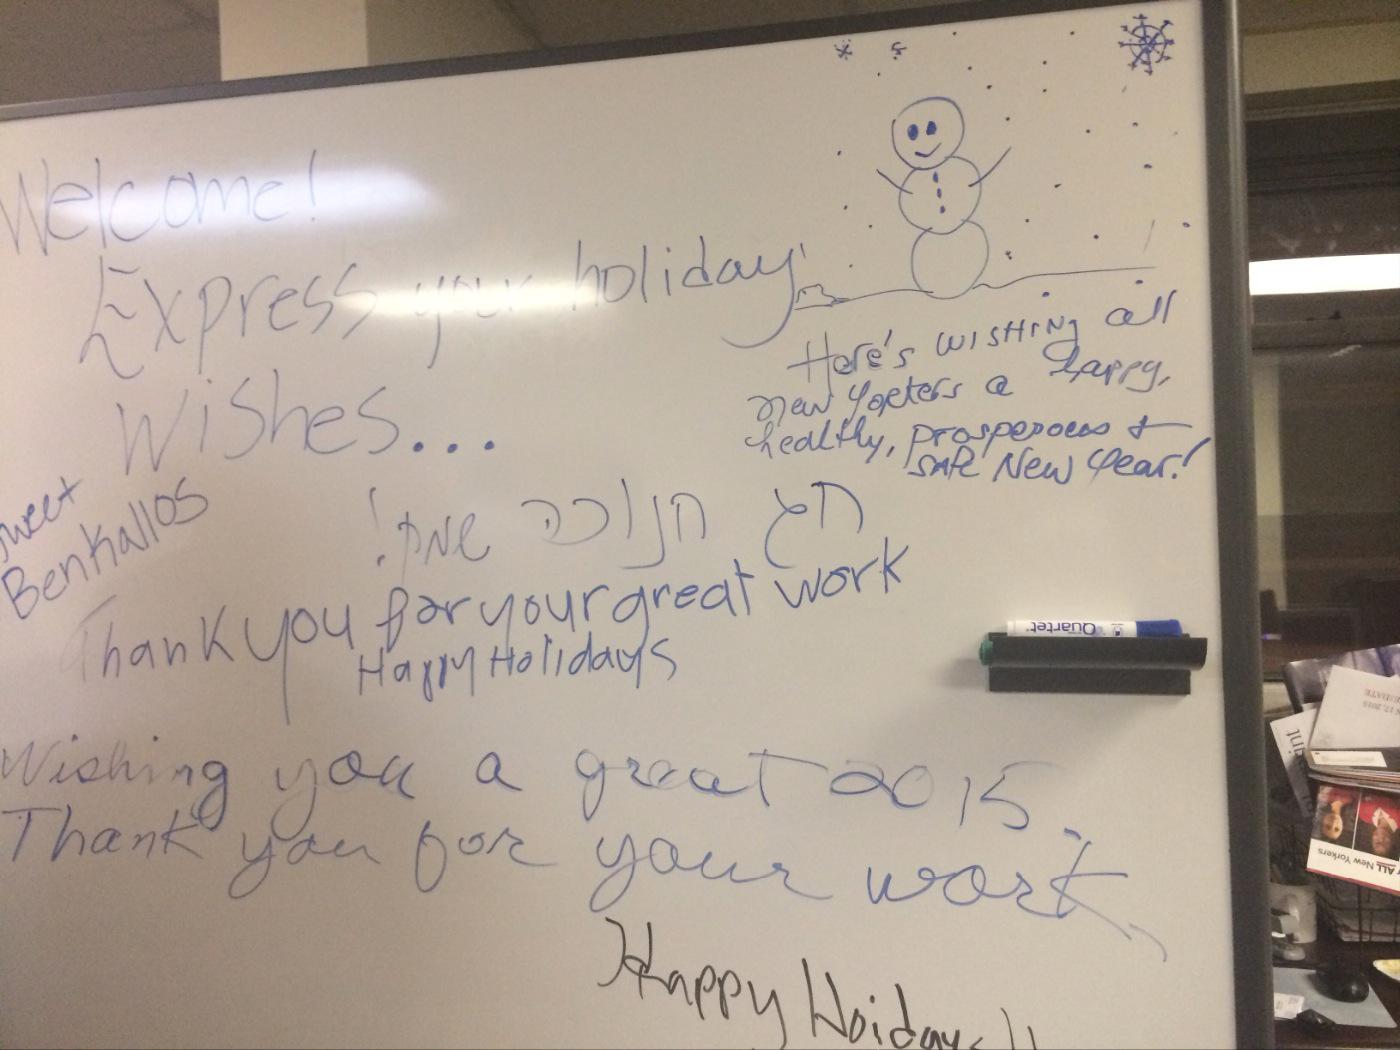 Welcome!
Express your holiday
Wishes...
Here's wishing all
new yorkers a happy,
healthy, prosperous +
safe New Year!
sweet
BenKallos
חג חנוכה שמח!
Thank you for your great work
Happy Holidays
Wishing you a great 2015.
Thank you for your work.
Happy Hoidays!!
Quartet
ALL New Yorkers